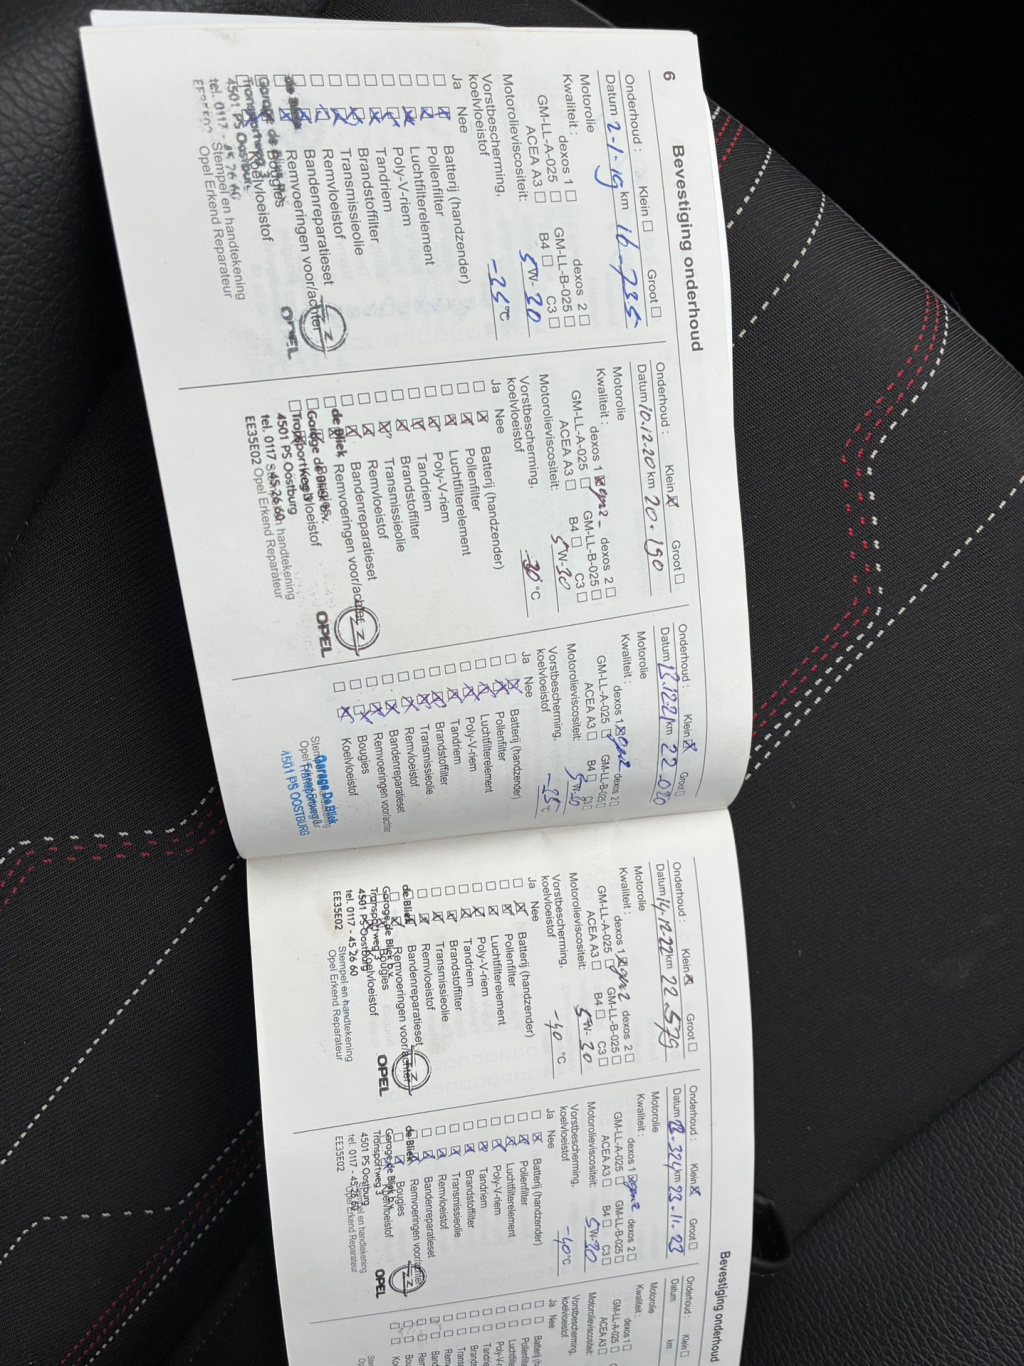 6
Bevestiging onderhoud
Onderhoud : Klein Groot
Datum 2-1-19 km 16-735
Motorolie
Kwaliteit : dexos 1 dexos 2
GM-LL-A-025 GM-LL-B-025
ACEA A3 B4 C3
Motorolieviscositeit: 5W-30
Vorstbescherming,
koelvloeistof -25 °C
Ja Nee
Batterij (handzender)
Pollenfilter
Luchtfilterelement
Poly-V-riem
Tandriem
Brandstoffilter
Transmissieolie
Remvloeistof
Bandenreparatieset
Remvoeringen voor/achter
Bougies
Koelvloeistof
Stempel en handtekening
Opel Erkend Reparateur
de Bliek
Garage de Bliek b.v.
Transportweg 3
4501 PS Oostburg
tel. 0117 - 45 26 60
EE35E02
OPEL
Onderhoud : Klein Groot
Datum 10.12.20 km 20.190
Motorolie
Kwaliteit : dexos 1 dexos 2
GM-LL-A-025 GM-LL-B-025
ACEA A3 B4 C3
Motorolieviscositeit: 5W-30
Vorstbescherming,
koelvloeistof -30 °C
Ja Nee
Batterij (handzender)
Pollenfilter
Luchtfilterelement
Poly-V-riem
Tandriem
Brandstoffilter
Transmissieolie
Remvloeistof
Bandenreparatieset
Remvoeringen voor/achter
Bougies
Koelvloeistof
Stempel en handtekening
Opel Erkend Reparateur
de Bliek
Garage de Bliek b.v.
Transportweg 3
4501 PS Oostburg
tel. 0117 - 45 26 60
EE35E02
OPEL
Onderhoud : Klein Groot
Datum km 22.020
Motorolie
Kwaliteit : dexos 1 dexos 2
GM-LL-A-025 GM-LL-B-025
ACEA A3 B4 C3
Motorolieviscositeit: 5W-30
Vorstbescherming,
koelvloeistof -25 °C
Ja Nee
Batterij (handzender)
Pollenfilter
Luchtfilterelement
Poly-V-riem
Tandriem
Brandstoffilter
Transmissieolie
Remvloeistof
Bandenreparatieset
Remvoeringen voor/achter
Bougies
Koelvloeistof
Garage De Bliek
Transportweg 3
4501 PS OOSTBURG
Onderhoud : Klein Groot
Datum 14-12-22 km 22.579
Motorolie
Kwaliteit : dexos 1 dexos 2
GM-LL-A-025 GM-LL-B-025
ACEA A3 B4 C3
Motorolieviscositeit: 5W-30
Vorstbescherming,
koelvloeistof -40 °C
Ja Nee
Batterij (handzender)
Pollenfilter
Luchtfilterelement
Poly-V-riem
Tandriem
Brandstoffilter
Transmissieolie
Remvloeistof
Bandenreparatieset
Remvoeringen voor/achter
Bougies
Koelvloeistof
Stempel en handtekening
Opel Erkend Reparateur
de Bliek
Garage de Bliek b.v.
Transportweg 3
4501 PS Oostburg
tel. 0117 - 45 26 60
EE35E02
OPEL
Bevestiging onderhoud
Onderhoud : Klein Groot
Datum km 23.11.23
Motorolie
Kwaliteit : dexos 1 dexos 2
GM-LL-A-025 GM-LL-B-025
ACEA A3 B4 C3
Motorolieviscositeit: 5W-30
Vorstbescherming,
koelvloeistof -40 °C
Ja Nee
Batterij (handzender)
Pollenfilter
Luchtfilterelement
Poly-V-riem
Tandriem
Brandstoffilter
Transmissieolie
Remvloeistof
Bandenreparatieset
Remvoeringen voor/achter
Bougies
Koelvloeistof
Stempel en handtekening
Opel Erkend Reparateur
de Bliek
Garage de Bliek b.v.
Transportweg 3
4501 PS Oostburg
tel. 0117 - 45 26 60
EE35E02
OPEL
Onderhoud : Klein
Datum km
Motorolie
Kwaliteit : dexos 1
GM-LL-A-025
ACEA A3
Motorolieviscositeit:
Vorstbescherming,
koelvloeistof
Ja Nee